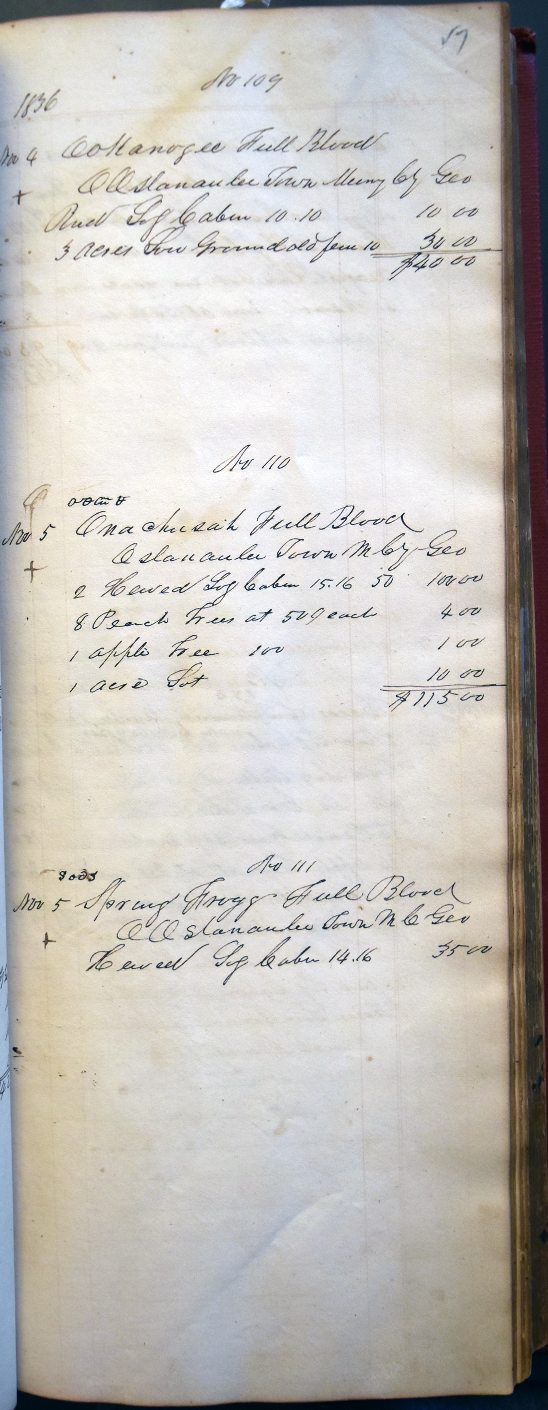 57
No 109
1836
Nov 4 Ookanogee Full Blood
+ OOstanaulee Town Murry Cty Geo
Rud Log Cabin 10.10 10 00
3 acres Low Ground old fence 10 30 00
$40 00
No 110
Nov 5 Onachusah Full Blood
+ Ostanaulee Town M Cty Geo
2 Hewed Log Cabin 15.16 50 100 00
8 Peach Trees at 50 each 4 00
1 apple Tree 100 1 00
1 acre Lot 10 00
$115 00
No 111
Nov 5 Spring Frogg Full Blood
+ OOstanaulee Town M C Geo
Hewed Log Cabin 14.16 35 00